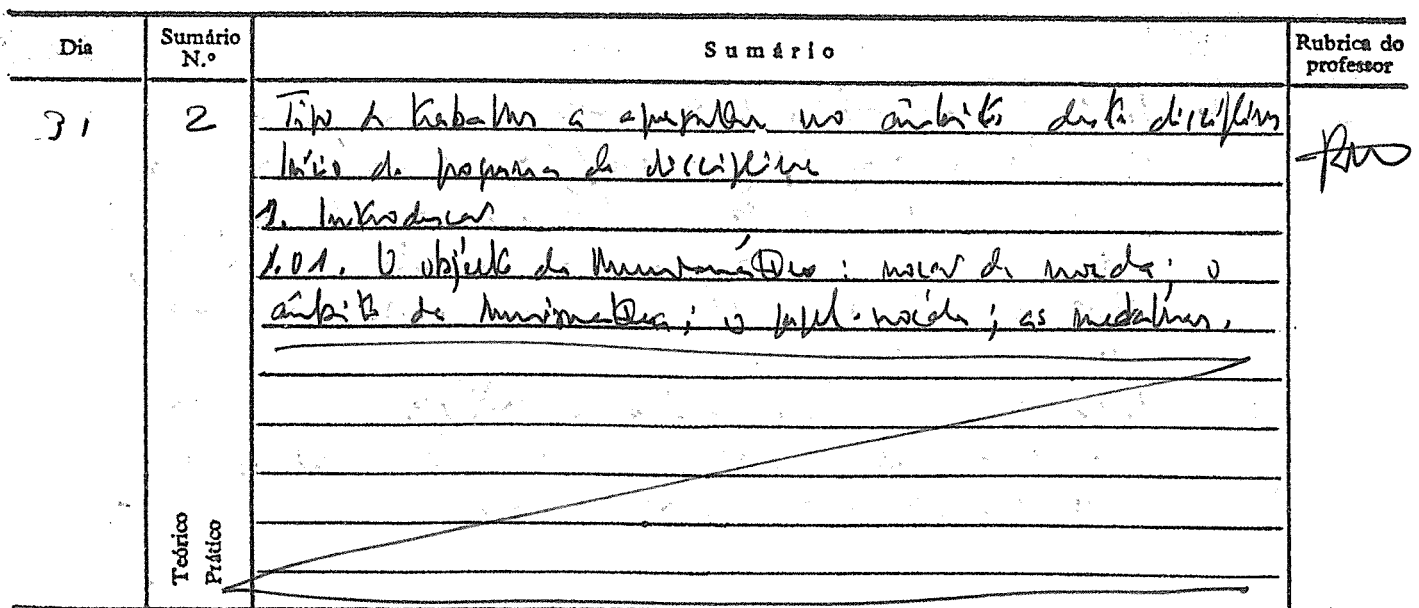 Dia
Sumário N.º
Sumário
Rubrica do professor
31
2
Tipo de trabalhos a apresentar no âmbito desta disciplina
Início do programa da disciplina
1. Introdução
1.01. O objecto da Numismática: noção de moeda; o
âmbito da Numismática; o papel-moeda; as medalhas.
Teórico
Prático